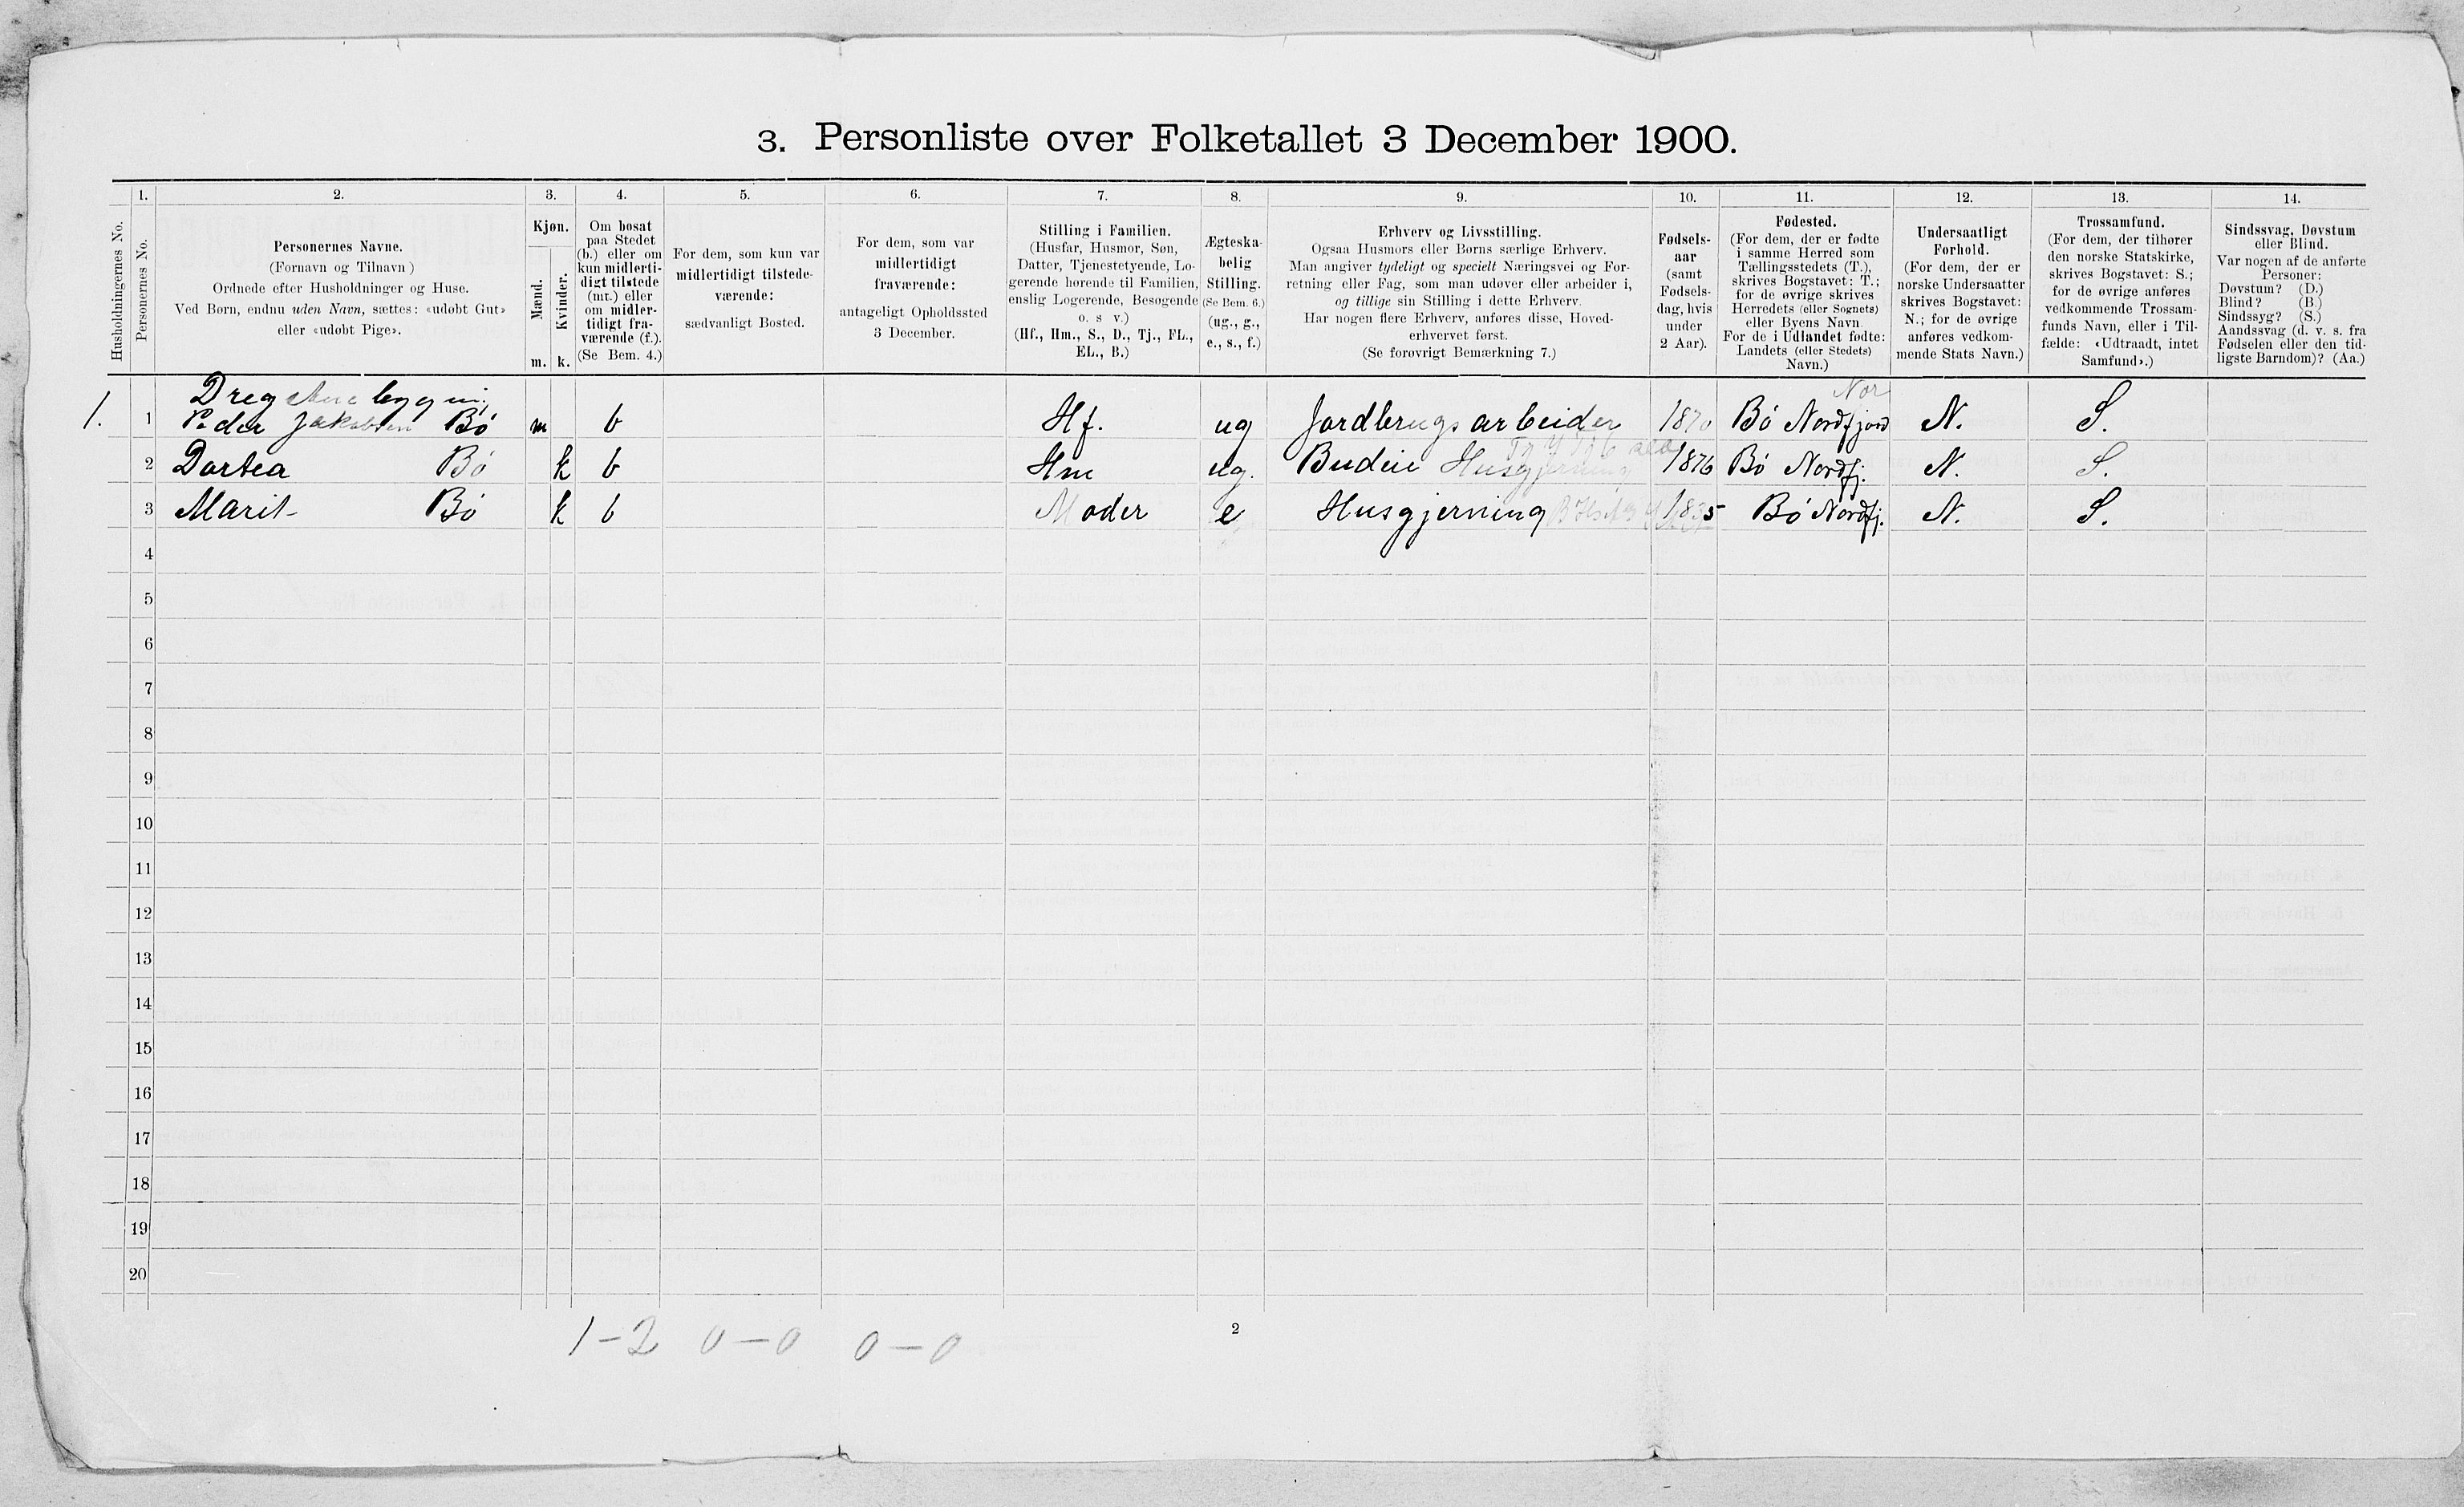 3. Personliste over Folketallet 3 December 1900.
Husholdningernes No.
1.
Personernes No.
2.
Personernes Navne.
(Fornavn og Tilnavn)
Ordnede efter Husholdninger og Huse.
Ved Børn, endnu uden Navn, sættes: «udøbt Gut»
eller «udøbt Pige».
3.
Kjøn.
Mænd.
Kvinder.
m. k.
4.
Om bosat
paa Stedet
(b.) eller om
kun midlerti-
digt tilstede
(mt.) eller
om midler-
tidigt fra-
værende (f.).
(Se Bem. 4.)
5.
For dem, som kun var
midlertidigt tilstede-
værende:
sædvanligt Bosted.
6.
For dem, som var
midlertidigt
fraværende:
antageligt Opholdssted
3 December.
7.
Stilling i Familien.
(Husfar, Husmor, Søn,
Datter, Tjenestetyende, Lo-
gerende hørende til Familien,
enslig Logerende, Besøgende
o. s v.)
(Hf., Hm., S., D., Tj., FL.,
EL., B.)
8.
Ægteska-
belig
Stilling.
(Se Bem. 6.)
(ug., g.,
e., s., f.)
9.
Erhverv og Livsstilling.
Ogsaa Husmors eller Børns særlige Erhverv.
Man angiver tydeligt og specielt Næringsvei og For-
retning eller Fag, som man udøver eller arbeider i,
og tillige sin Stilling i dette Erhverv.
Har nogen flere Erhverv, anføres disse, Hoved-
erhvervet først.
(Se forøvrigt Bemærkning 7.)
10.
Fødsels-
aar
(samt
Fødsels-
dag, hvis
under
2 Aar).
11.
Fødested.
(For dem, der er fødte
i samme Herred som
Tællingsstedets (T.),
skrives Bogstavet: T.;
for de øvrige skrives
Herredets (eller Sognets)
eller Byens Navn.
For de i Udlandet fødte:
Landets (eller Stedets)
Navn.)
12.
Undersaatligt
Forhold.
(For dem, der er
norske Undersaatter
skrives Bogstavet:
N.; for de øvrige
anføres vedkom-
mende Stats Navn.)
13.
Trossamfund.
(For dem, der tilhører
den norske Statskirke,
skrives Bogstavet: S.;
for de øvrige anføres
vedkommende Trossam-
funds Navn, eller i Til-
fælde: «Udtraadt, intet
Samfund».)
14.
Sindssvag, Døvstum
eller Blind.
Var nogen af de anførte
Personer:
Døvstum? (D.)
Blind? (B.)
Sindssyg? (S.)
Aandssvag (d. v. s. fra
Fødselen eller den tid-
ligste Barndom)? (Aa.)
Nor
1. 1 Peder Jakobsen Bø m b Hf. ug Jordbrugsarbeider 1870 Bø Nordfjord N. S.
2 Dortea Bø k b Hm ug. Budeie Husgjerning 1876 Bø Nordfj. N. S.
3 Marit Bø k b Moder e Husgjerning 1835 Bø Nordfj. N. S.
4
5
6
7
8
9
10
11
12
13
14
15
16
17
18
19
20
1-2 0-0 0-0
2